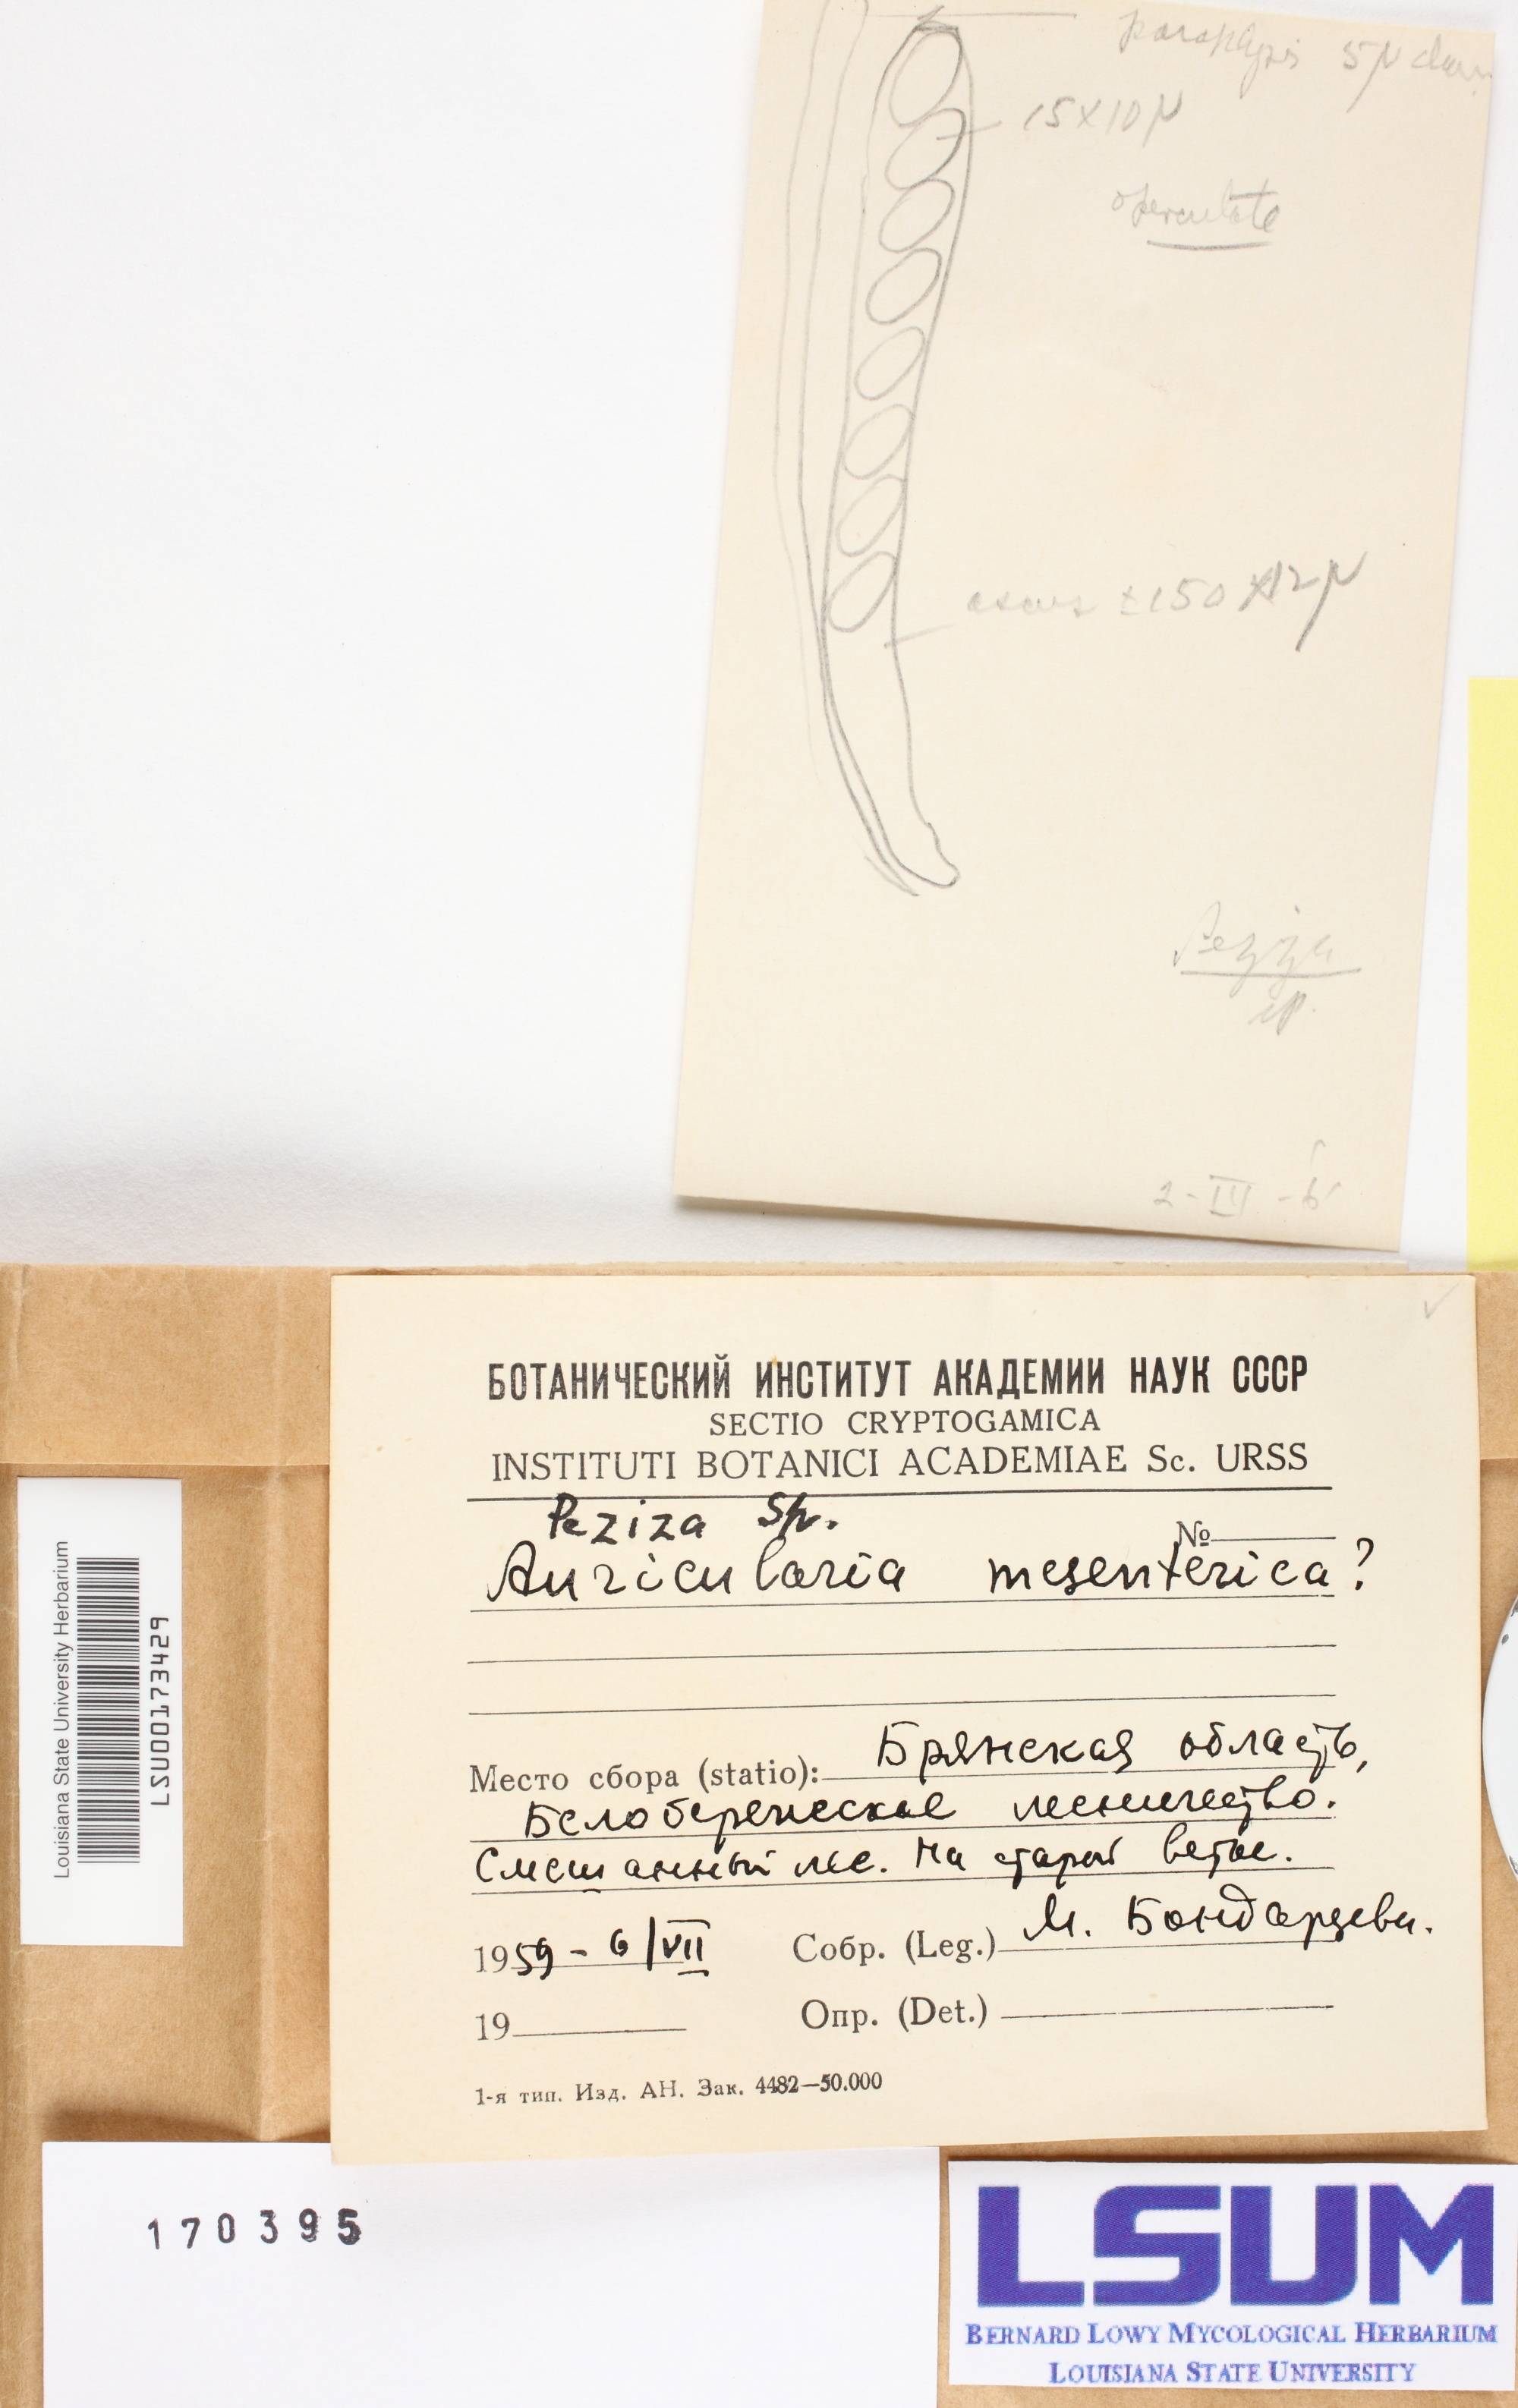 paraphysis 5μ diam.
15×10μ
operculate
ascus ±150×12μ
Peziza
sp.
2-III-6
БОТАНИЧЕСКИЙ ИНСТИТУТ АКАДЕМИИ НАУК СССР
SECTIO CRYPTOGAMICA
INSTITUTI BOTANICI ACADEMIAE Sc. URSS
Peziza sp.
№
Auricularia mesenterica?
Место сбора (statio): Брянская область,
Белобережское лесничество.
Смешанный лес. На старой ветке.
1959 - 6/VII Собр. (Leg.) М. Бондарцева.
19 Опр. (Det.)
1-я тип. Изд. АН. Зак. 4482—50.000
Louisiana State University Herbarium
LSU00173429
170395
LSUM
BERNARD LOWY MYCOLOGICAL HERBARIUM
LOUISIANA STATE UNIVERSITY